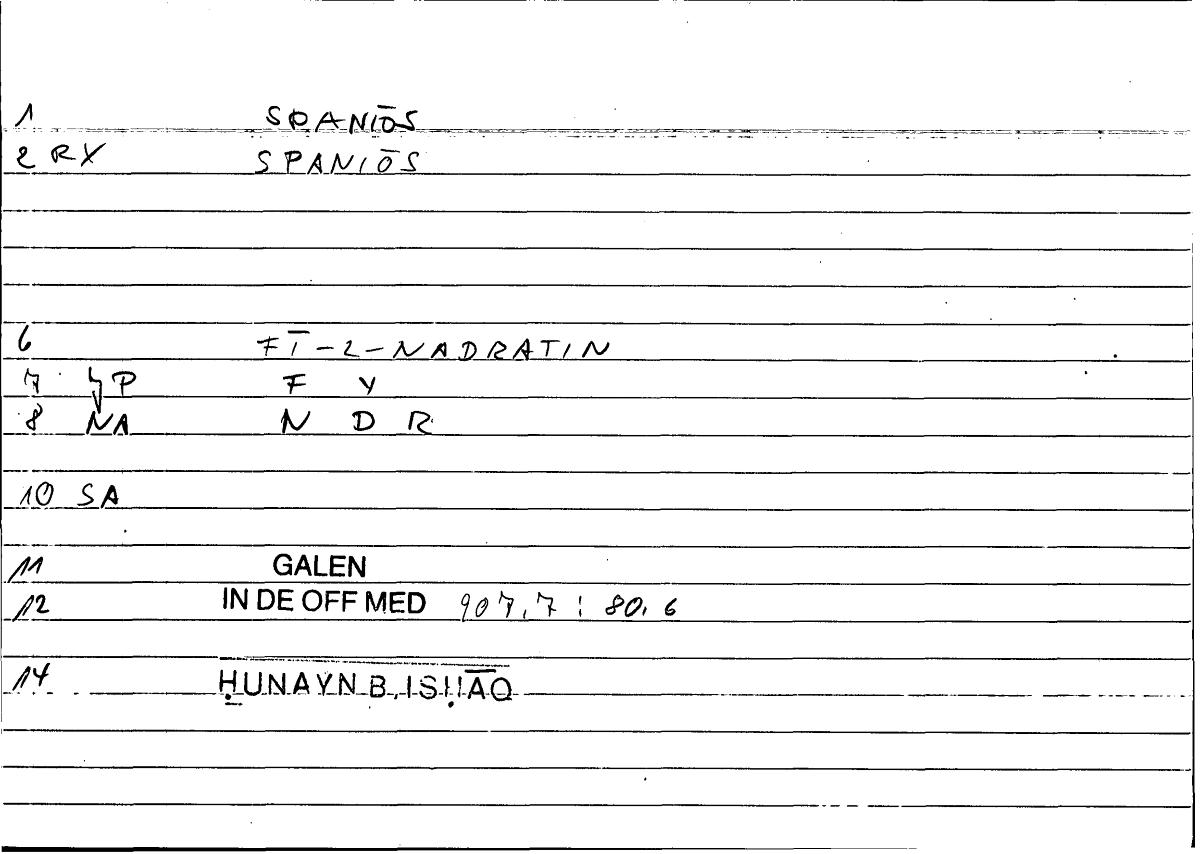 1 SPANIŌS
2 RX SPANIŌS
6 FĪ-L-NADRATIN
7 ϟP F Y
8 NA N D R
10 SA
11 GALEN
12 IN DE OFF MED 907,7 : 80,6
14 ḤUNAYN B. ISḤĀQ